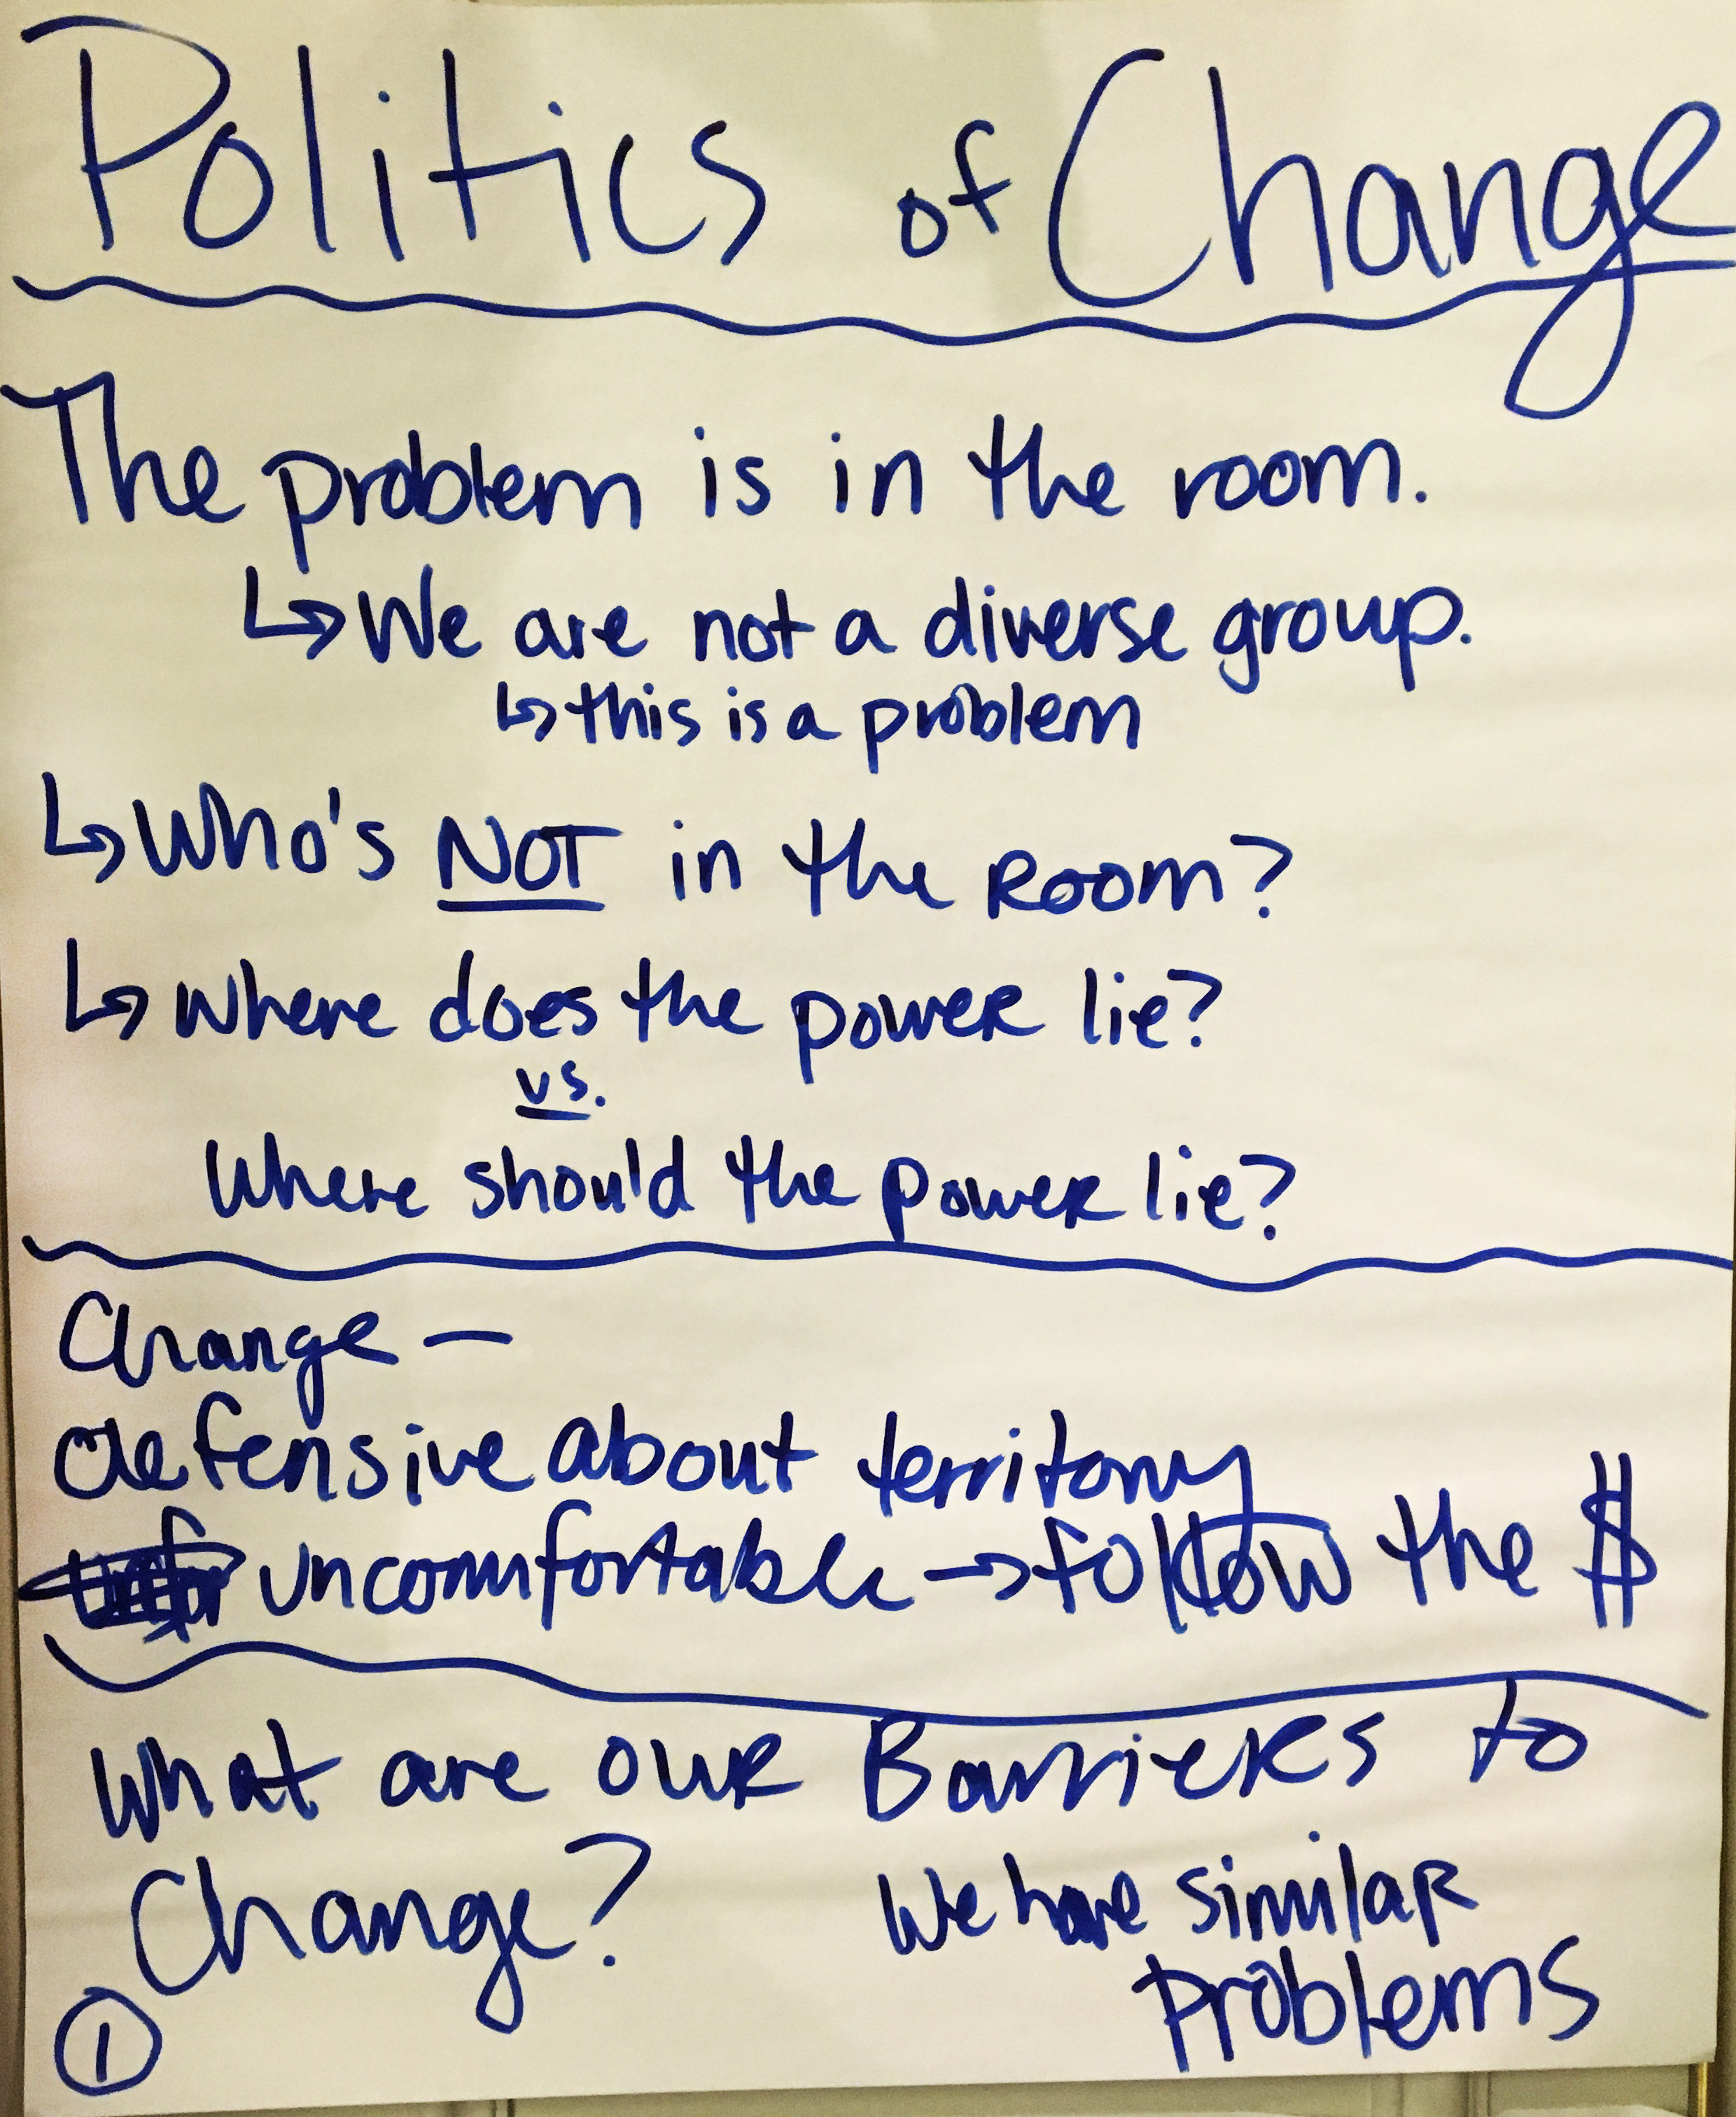 Politics of Change
The problem is in the room.
↳ We are not a diverse group.
↳ this is a problem
↳ Who's NOT in the Room?
↳ Where does the power lie?
vs.
Where should the power lie?
Change —
defensive about territory
uncomfortable → follow the $
What are our Barriers to
Change?
We have similar
Problems
1